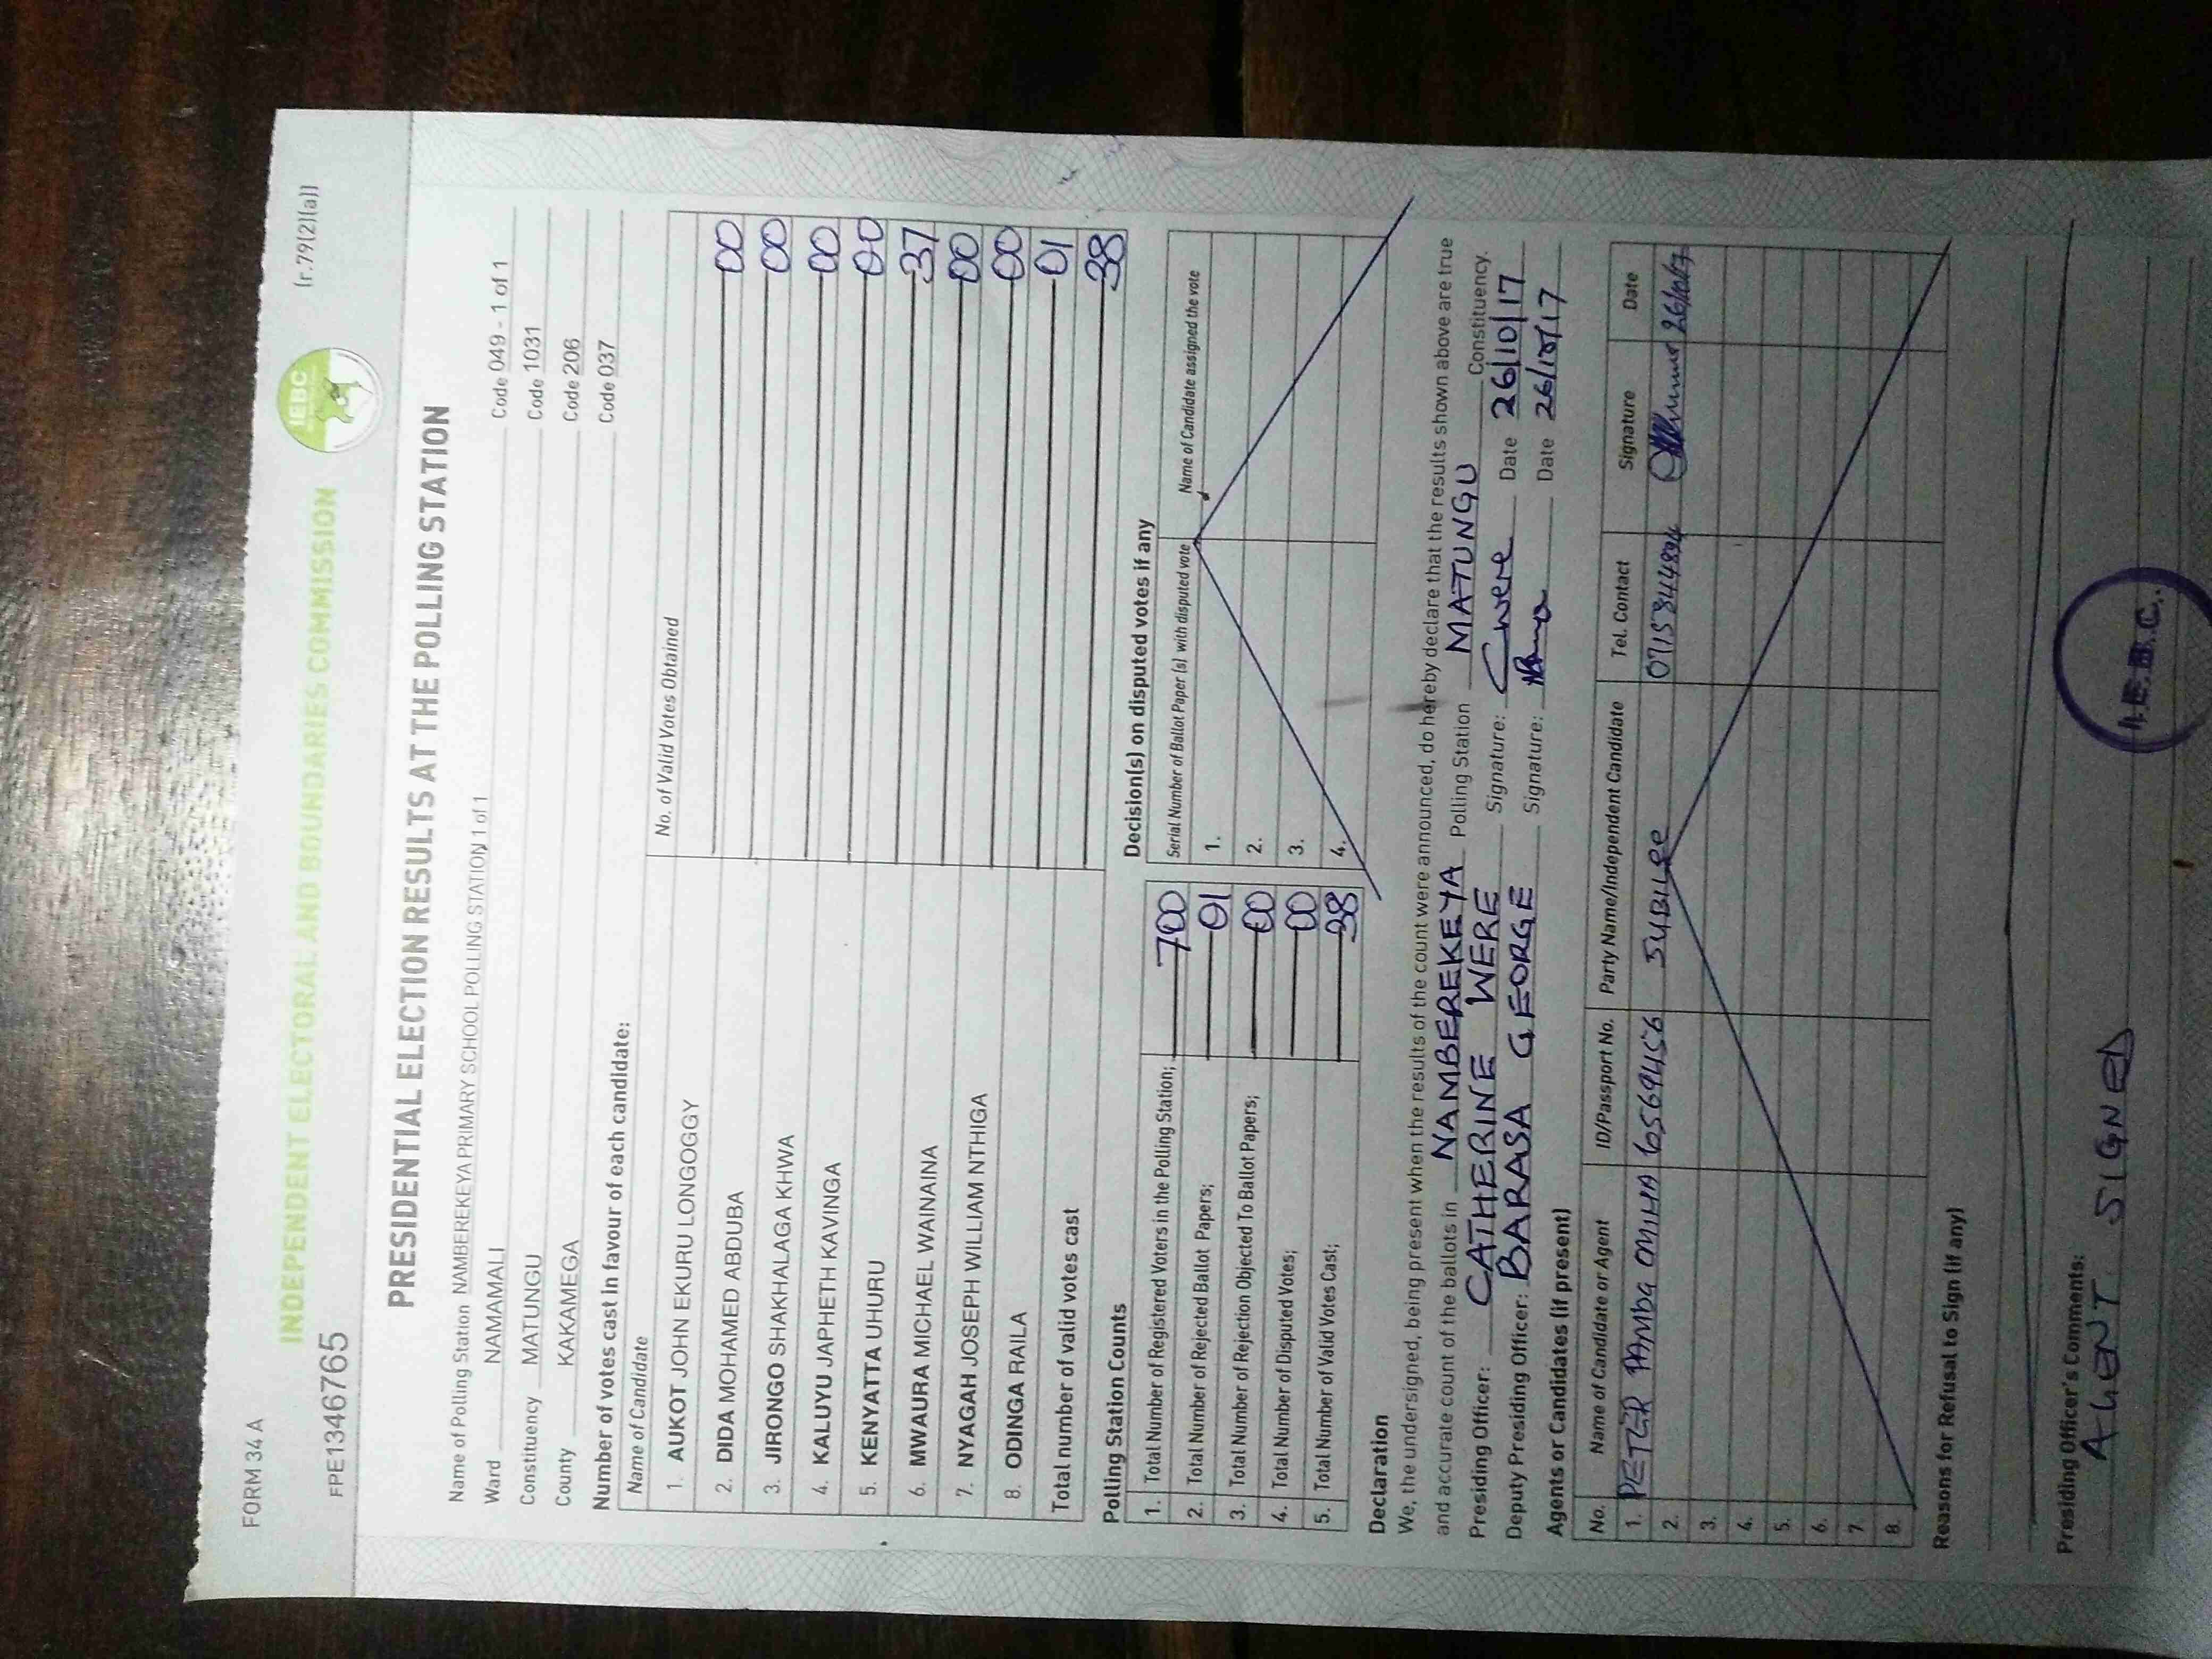 FORM 34 A
INDEPENDENT ELECTORAL AND BOUNDARIES COMMISSION
IEBC
(r.79(2)(a))
FPE1346765
PRESIDENTIAL ELECTION RESULTS AT THE POLLING STATION
Name of Polling Station NAMBEREKEYA PRIMARY SCHOOL POLLING STATION 1 of 1 Code 049 - 1 of 1
Ward NAMAMALI Code 1031
Constituency MATUNGU Code 206
County KAKAMEGA Code 037
Number of votes cast in favour of each candidate:
Name of Candidate No. of Valid Votes Obtained
1. AUKOT JOHN EKURU LONGOGGY 00
2. DIDA MOHAMED ABDUBA 00
3. JIRONGO SHAKHALAGA KHWA 00
4. KALUYU JAPHETH KAVINGA 00
5. KENYATTA UHURU 37
6. MWAURA MICHAEL WAINAINA 00
7. NYAGAH JOSEPH WILLIAM NTHIGA 00
8. ODINGA RAILA 01
Total number of valid votes cast 38
Polling Station Counts
1. Total Number of Registered Voters in the Polling Station; 700
2. Total Number of Rejected Ballot Papers; 01
3. Total Number of Rejection Objected To Ballot Papers; 00
4. Total Number of Disputed Votes; 00
5. Total Number of Valid Votes Cast; 38
Decision(s) on disputed votes if any
Serial Number of Ballot Paper (s) with disputed vote Name of Candidate assigned the vote
1.
2.
3.
4.
Declaration
We, the undersigned, being present when the results of the count were announced, do hereby declare that the results shown above are true
and accurate count of the ballots in NAMBEREKEYA Polling Station MATUNGU Constituency.
Presiding Officer: CATHERINE WERE Signature: Cwere Date 26/10/17
Deputy Presiding Officer: BARASA GEORGE Signature: Date 26/10/17
Agents or Candidates (if present)
No. Name of Candidate or Agent ID/Passport No. Party Name/Independent Candidate Tel. Contact Signature Date
1. PETER PAMBA OMIHA JUBILEE 26/10/17
2.
3.
4.
5.
6.
7.
8.
Reasons for Refusal to Sign (if any)
Presiding Officer's Comments:
AGENT SIGNED
I.E.B.C.